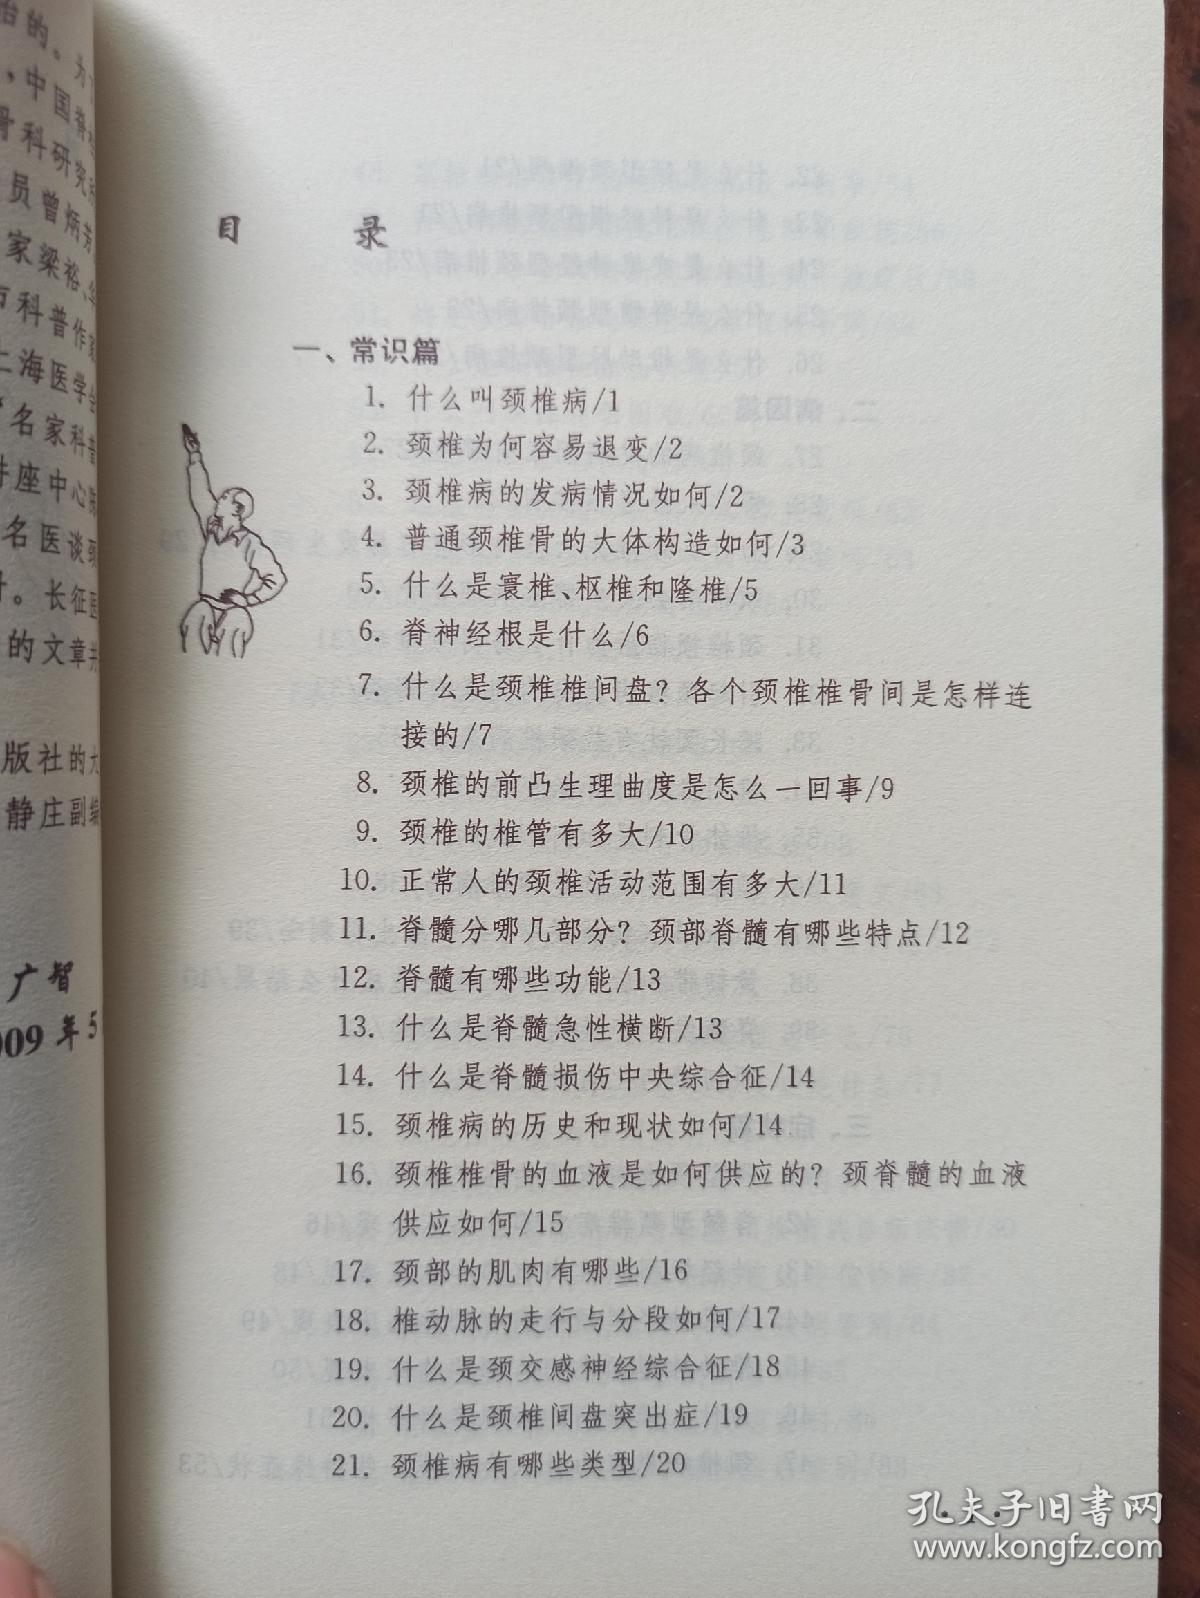 治的。为
，中国脊
骨科研究
员曾炳芳
家梁裕、华
市科普作家
上海医学会
“名家科普
讲座中心
名医谈颈
。长征医
的文章并
版社的大
静庄副编
广智
009 年 5
目 录
一、常识篇
1. 什么叫颈椎病/1
2. 颈椎为何容易退变/2
3. 颈椎病的发病情况如何/2
4. 普通颈椎骨的大体构造如何/3
5. 什么是寰椎、枢椎和隆椎/5
6. 脊神经根是什么/6
7. 什么是颈椎椎间盘？各个颈椎椎骨间是怎样连
接的/7
8. 颈椎的前凸生理曲度是怎么一回事/9
9. 颈椎的椎管有多大/10
10. 正常人的颈椎活动范围有多大/11
11. 脊髓分哪几部分？颈部脊髓有哪些特点/12
12. 脊髓有哪些功能/13
13. 什么是脊髓急性横断/13
14. 什么是脊髓损伤中央综合征/14
15. 颈椎病的历史和现状如何/14
16. 颈椎椎骨的血液是如何供应的？颈脊髓的血液
供应如何/15
17. 颈部的肌肉有哪些/16
18. 椎动脉的走行与分段如何/17
19. 什么是颈交感神经综合征/18
20. 什么是颈椎间盘突出症/19
21. 颈椎病有哪些类型/20
孔夫子旧书网
www.kongfz.com